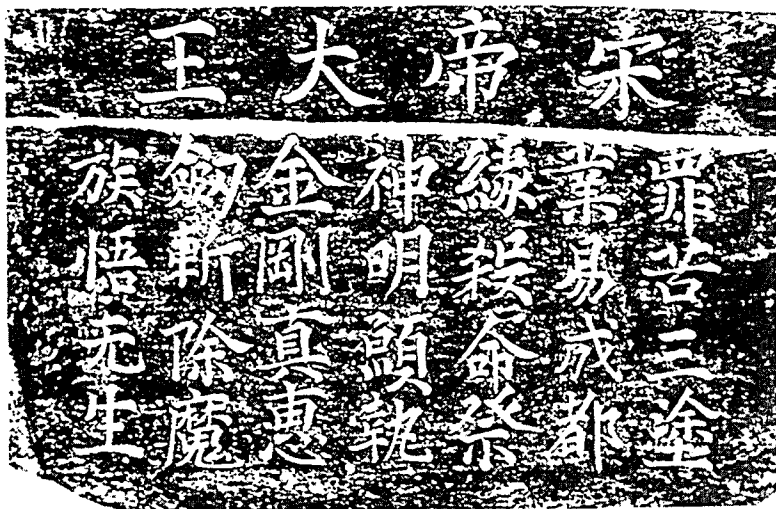 宋帝大王
罪苦三塗
業易成都
緣殺命祭
神明願執
金剛真惠
劒斬除魔
族悟无生